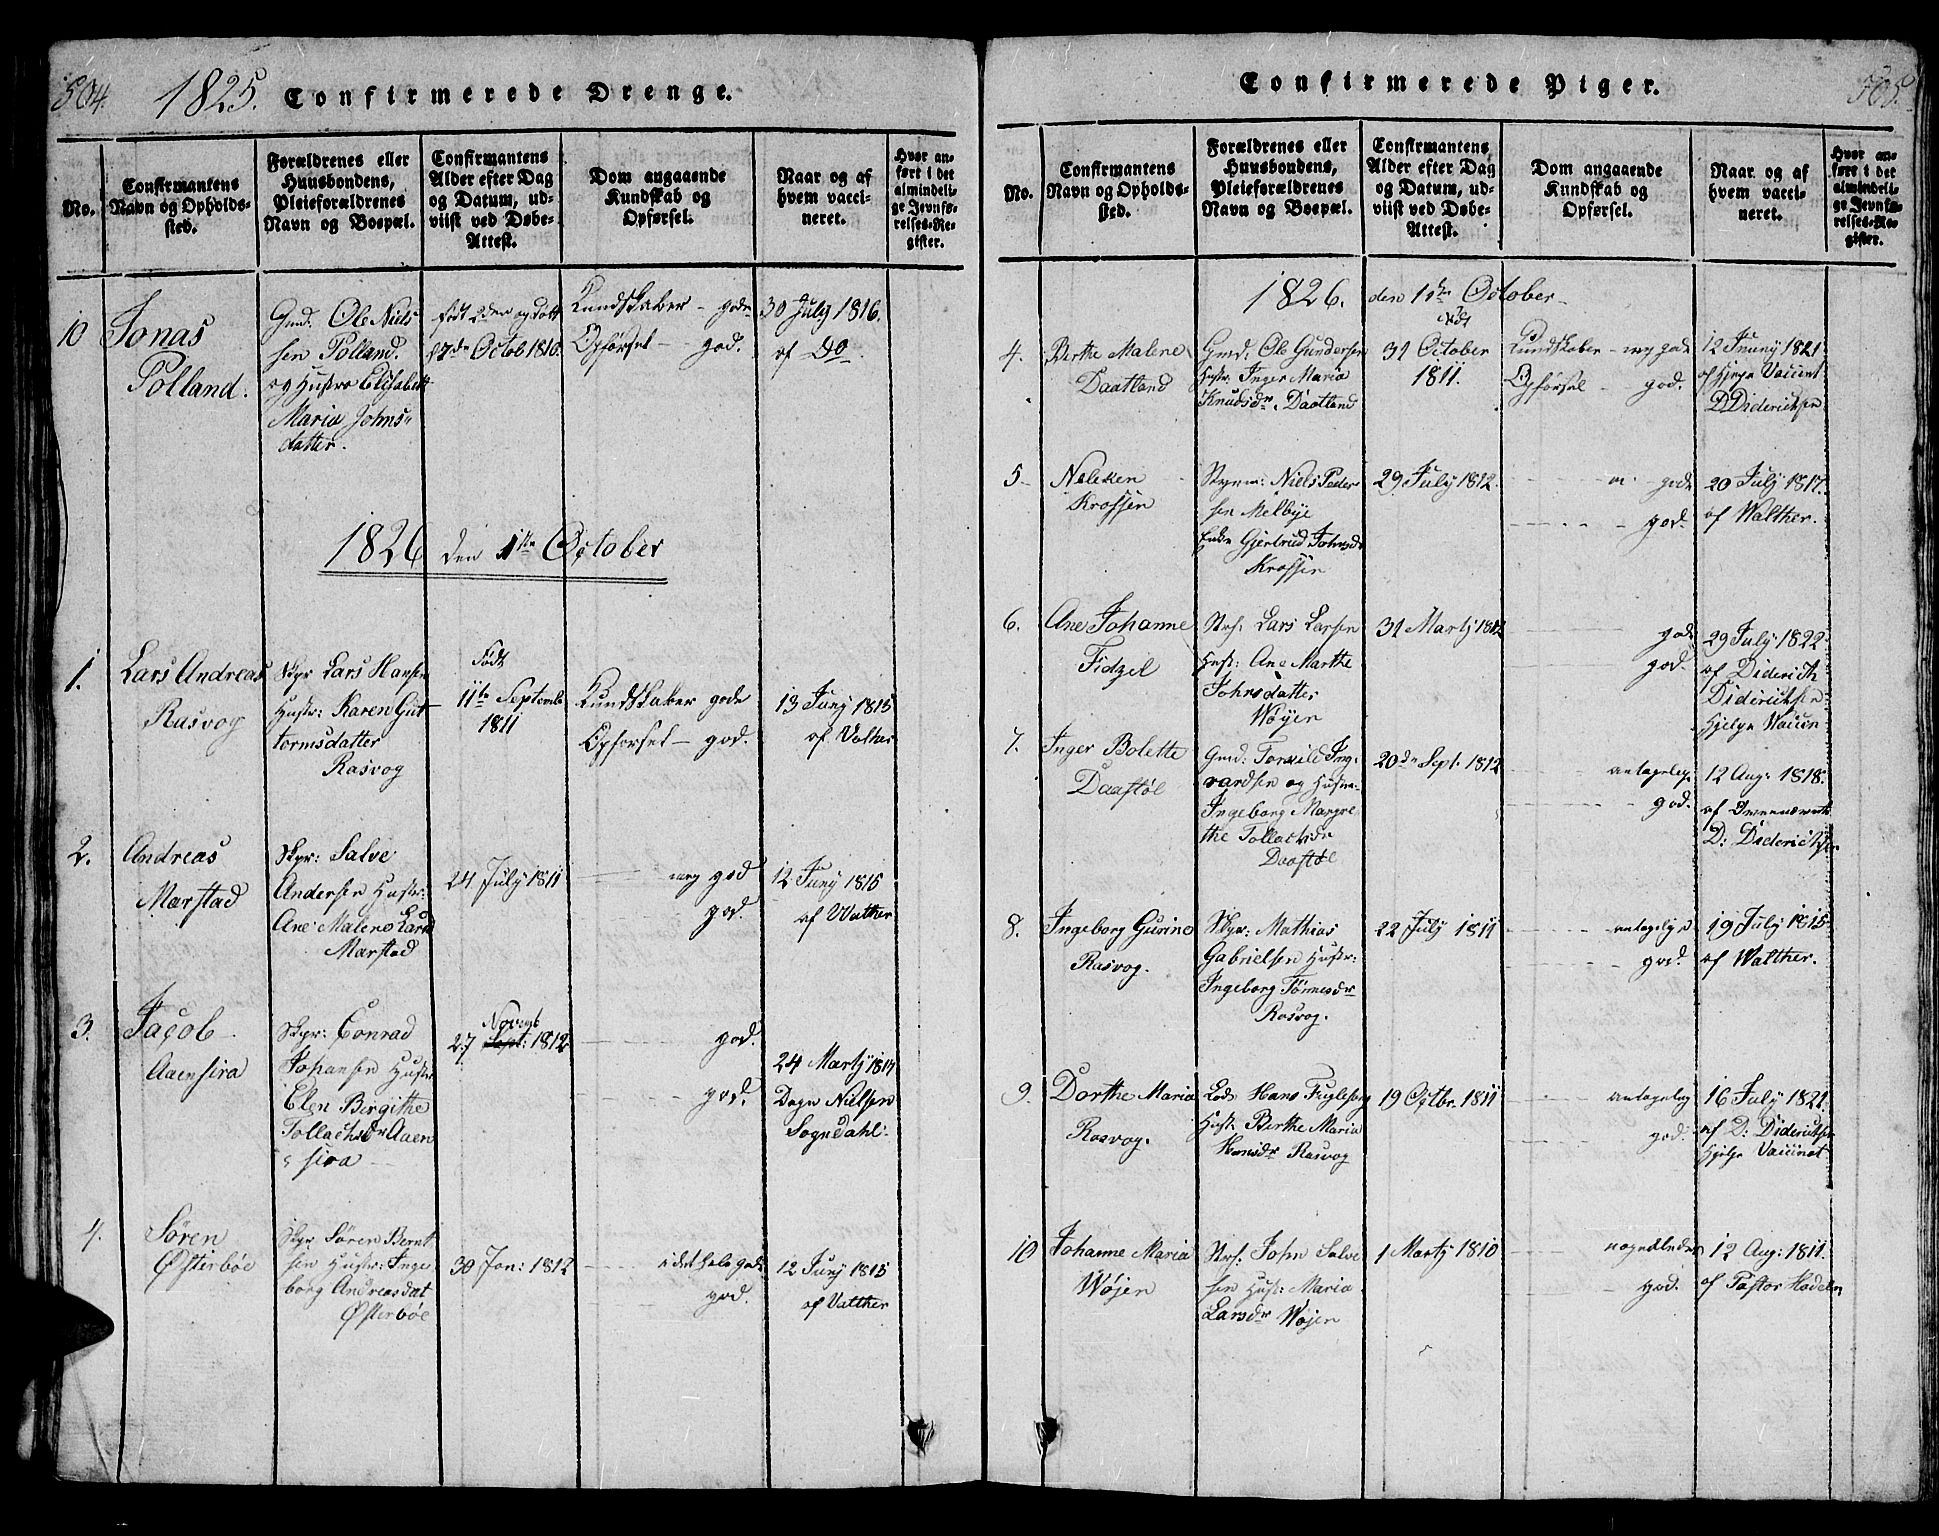 504. 1825. Confirmerede Drenge.
No.
Confirmantens
Navn og Opholds-
sted.
Forældrenes eller
Huusbondens,
Pleieforældrenes
Navn og Boepæl.
Confirmantens
Alder efter Dag
og Datum, ud-
viist ved Døbe-
Attest.
Dom angaaende
Kundskab og
Opførsel.
Naar og af
hvem vacci-
neret.
Hvor an-
ført i det
almindeli-
ge Jevnfø-
relses-Re-
gister.
10
Jonas
Polland.
Gmd. Ole Niels
sen Polland.
og Hustro Elisabeth
Maria Johns-
datter.
født 2den og døbt
17de Octob 1810.
Kundskaber - gode
Opførsel - god.
30 July 1816.
af Do
1826 den 1ste October
1.
Lars Andreas
Rasvog
Skpr Lars Hansen
Hustr: Karen Gut-
tormsdatter
Rasvog
Født
11te Septemb
1811
Kundskaber gode
Opførsel - god.
13 Juny 1815
af Valther
2.
Andreas
Marstad
Skpr: Salve
Andersen Hustr:
Ane Malene Lars
Marstad
24 July 1811
meg god
god.
12 Juny 1815
af Walther
3.
Jacob
Aaensira
Skpr: Conrad
Johansen Hustr
Elen Birgithe
Tollachsdr Aaen
sira
Novemb
27 Sept: 1812
god.
god.
24 Martj 1814
Degn Nielsen
Sogndahl.
4.
Søren
Østerbøe
Skpr Søren Bernt
sen Hustr: Inge
borg Andreasdat
Østerbøe
30 Jan: 1812
i det hele gode
god.
12 Juny 1815
af Valther
Confirmerede Piger. 505.
No.
Confirmantens
Navn og Opholds-
sted.
Forældrenes eller
Huusbondens,
Pleieforældrenes
Navn og Boepæl.
Confirmantens
Alder efter Dag
og Datum, ud-
viist ved Døbe-
Attest.
Dom angaaende
Kundskab og
Opførsel.
Naar og af
hvem vacci-
neret.
Hvor an-
ført i det
almindeli-
ge Jevnfø-
relses-Re-
gister.
1826. den 1ste October
4.
Berthe Malene
Daatland
Gmd. Ole Gundersen
Hustr: Inger Maria
Knudsdr. Daatland
født
31 October
1811.
Kundskaber - meg gode
Opførsel - god.
12 Juny 1821
af Hjelpe Vaccinat
D Diderichsen
5
Neleken
Krossen
Niels Peder
sen Melbye
Enke Gjertrud Johnsdr
Krossen
29 July 1812.
gode
god.
20 July 1817.
af Walther.
6.
Ane Johanne
Fidzel
Strs: Lars Larsen
Hust: Ane Marthe
Johnsdatter
Wøyen
31 Martj 1812
gode
god.
29 July 1822
af Diderich
Diderichsen
Hjelpe Vaccin
7.
Inger Bolette
Daastøl
Gmd: Torkild Ing-
vardsen og Hustr.
Ingeborg Margre
the Tollachsdr
Daastøl
20de Sept. 1812
antagelige
god.
12 Aug: 1818.
af
D: Diderichsen
8.
Ingeborg Gurine
Rasvog.
Skpr: Mathias
Gabrielsen Hustr:
Ingeborg Tønnesdr
Rasvog.
22 July 1811
antagelige
god.
19 July 1815
af Walther.
9.
Dorthe Maria
Rasvog.
Lods Hans Fuglesang
Hust: Berthe Maria
Hansdr Rasvog
19 Octbr. 1811
antagelig
god.
16 July 1821.
af D: Diderichsen
Hjelpe Vaccinat
10
Johanne Maria
Wøjen
Strs: John Salve
sen Hust: Maria
Larsdr Wøjen
1 Martj 1810
nogenledes
god.
12 Aug: 1811.
af Pastor Hadeln